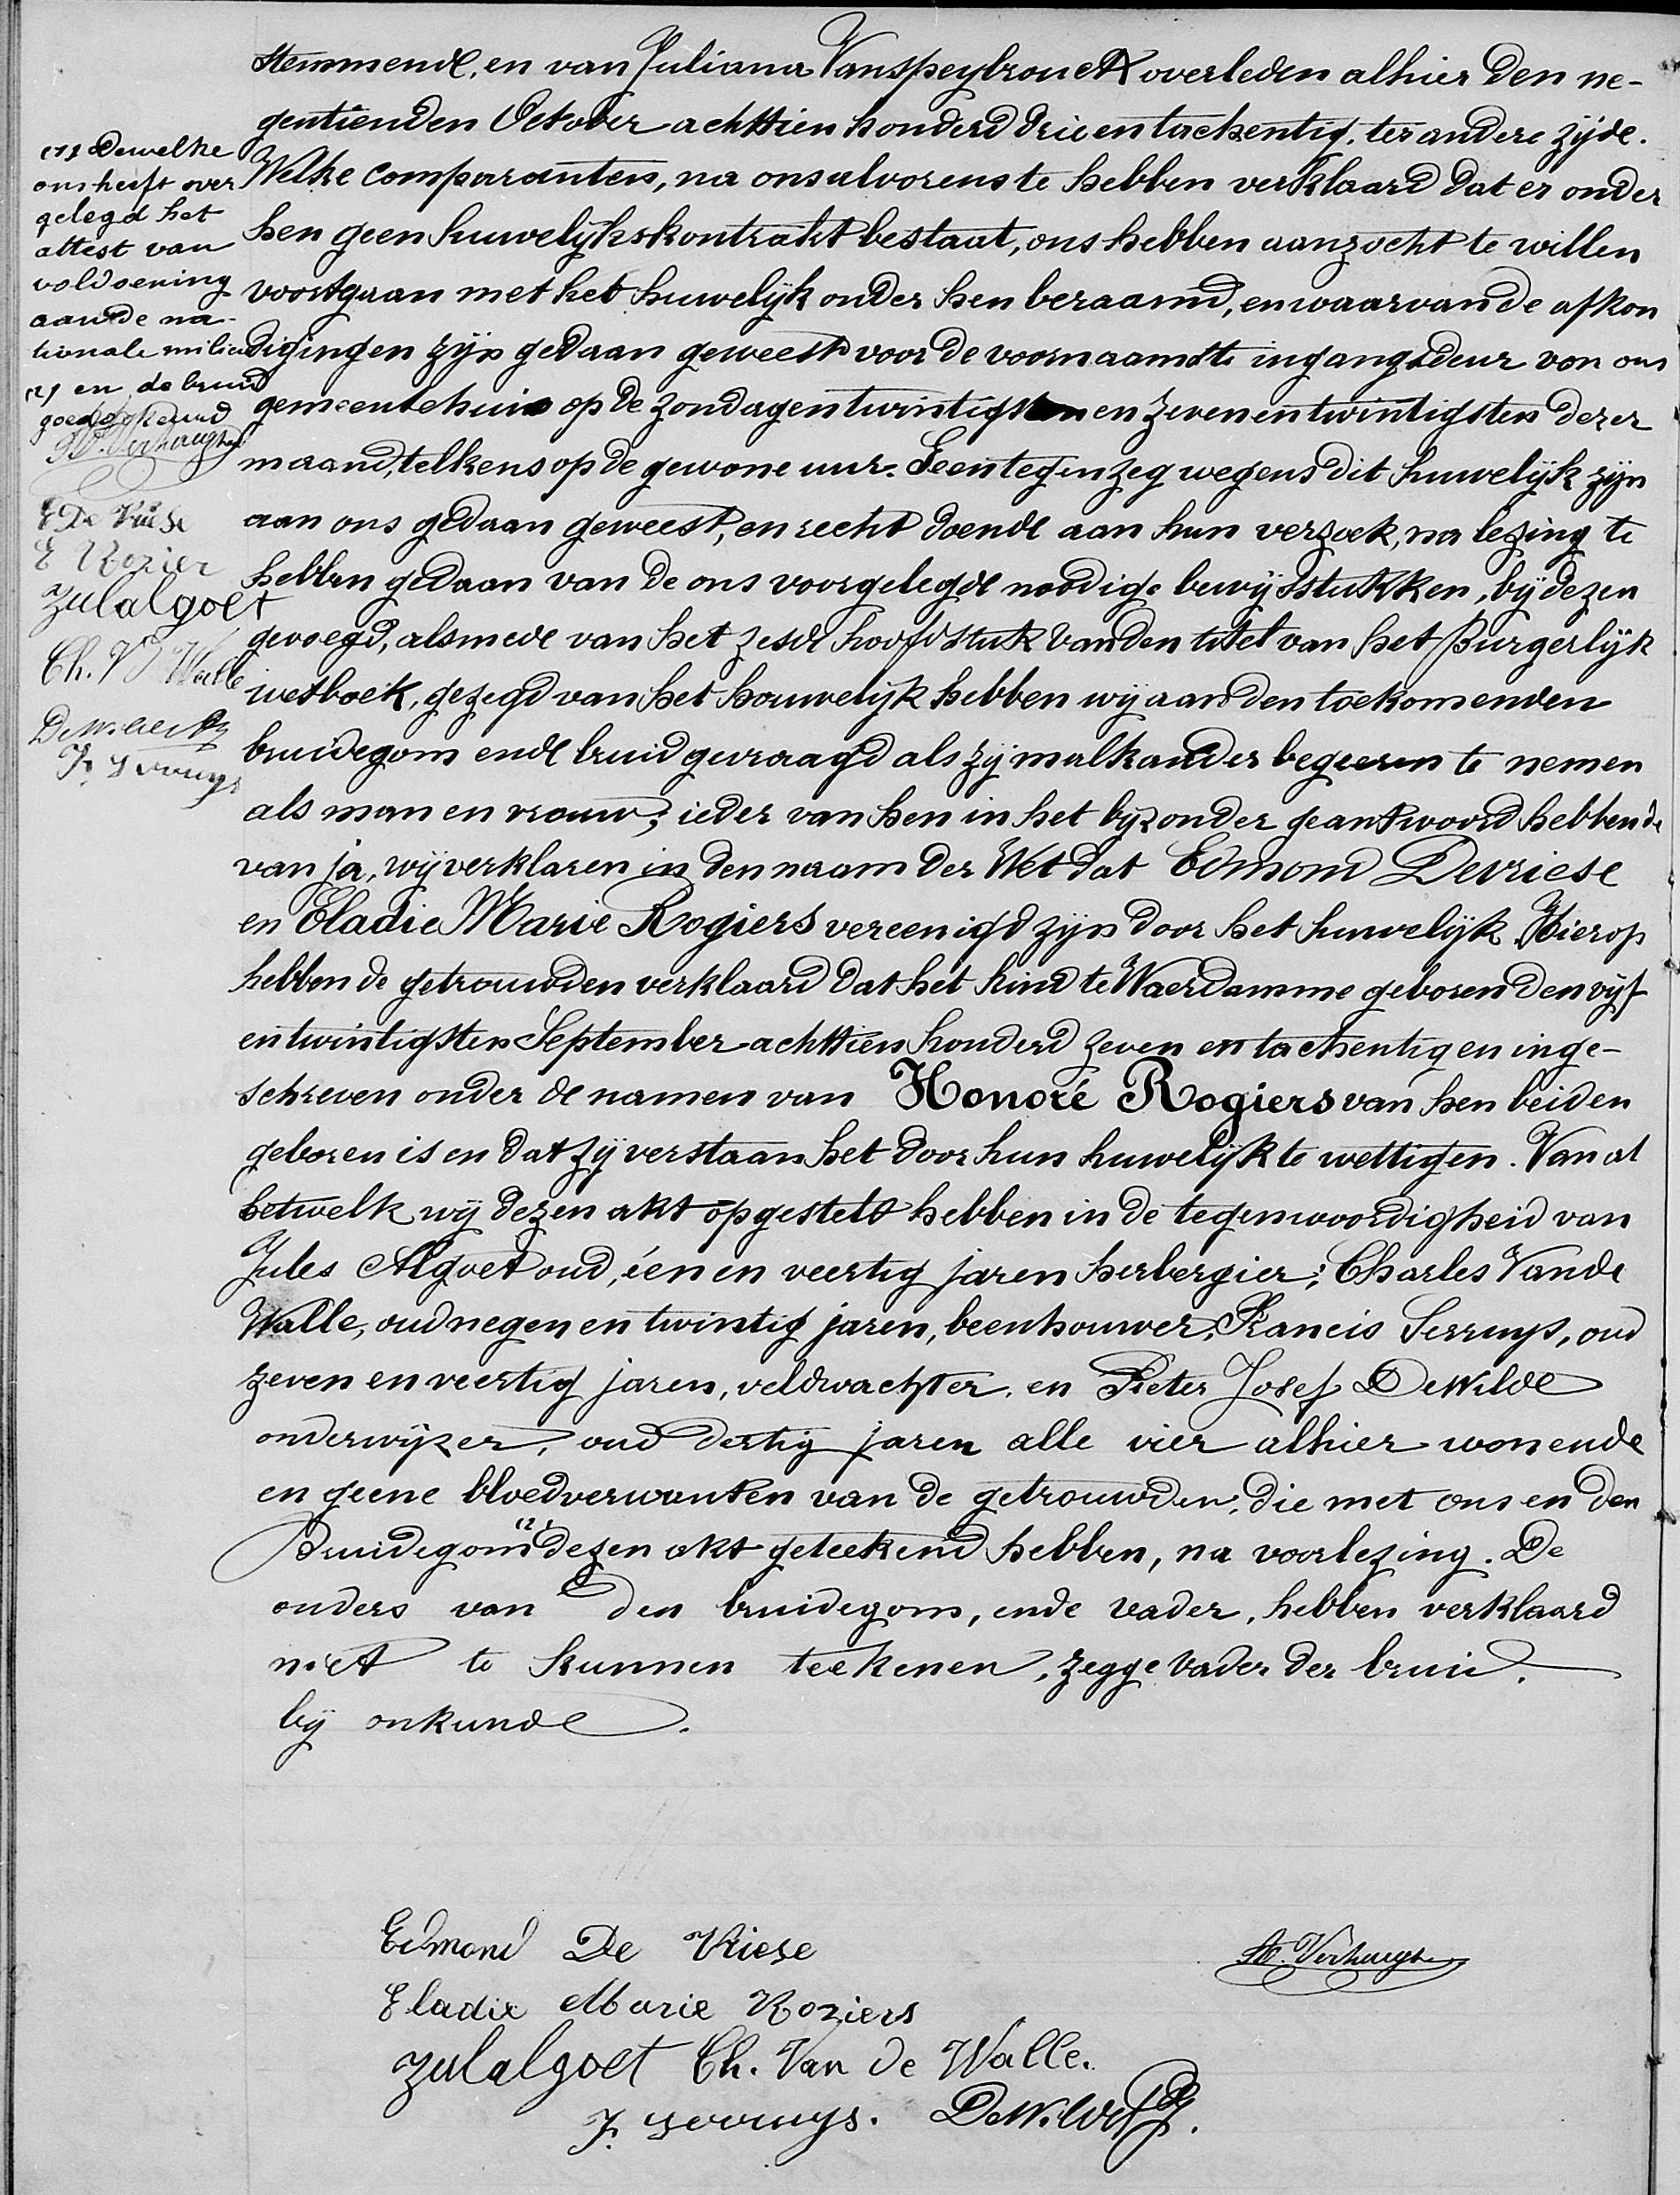 stemmende, en van Juliana Vanspeybrouck overleden alhier den ne-
gentienden October achttien honderd drie en tachentig. ter andere zijde.
Welke comparanten, na ons alvorens te hebben verklaard dat er onder
hen geen huwelijkskontrakt bestaat, ons hebben aanzocht te willen
voortgaan met het huwelijk onder hen beraamd, en waarvan de afkon
digingen zijn gedaan geweest voor de voornaamste ingangsdeur van ons
gemeentehuis op de zondagen twintigsten en zevenentwintigsten dezer
maand, telkens op de gewone uur. Geen tegenzeg wegens dit huwelijk zijn
aan ons gedaan geweest, en recht doende aan hun verzoek, na lezing te
hebben gedaan van de ons voorgelegde noodige bewijsstukken, bij dezen
gevoegd, alsmede van het zesde hoofdstuk van den titel van het Burgerlijk
wetboek, gezegd van het houwelijk hebben wij aan den toekomenden
bruidegom ende bruid gevraagd als zij malkander begeeren te nemen
als man en vrouw; ieder van hen in het bijzonder geantwoord hebbende
van ja, wij verklaren in den naam der Wet dat Edmond Devriese
en Eladie Marie Rogiers vereenigd zijn door het huwelijk. Hierop
hebben de getrouwden verklaard dat het kind te Waerdamme geboren den vijf
en twintigsten September achttien honderd zeven en tachentig en inge-
schreven onder de namen van Honoré Rogiers van hen beiden
geboren is en dat zij verstaan het door hun huwelijk te wettigen. Van al
hetwelk wij dezen akt opgesteld hebben in de tegenwoordigheid van
Jules Algoet oud, éen en veertig jaren herbergier; Charles Vande
Walle, oud negen en twintig jaren, beenhouwer, Francis Serruys, oud
zeven en veertig jaren, veldwachter, en Pieter Josef DeWilde
onderwijzer, oud dertig jaren alle vier alhier wonende
en geene bloedverwanten van de getrouwden, die met ons en den
Bruidegom (2) dezen akt geteekend hebben, na voorlezing. De
ouders van den bruidegom, ende vader, hebben verklaard
niet te kunnen teekenen, zegge vader der bruid.
bij onkunde.
(1) Dewelke
ons heeft over
gelegd het
attest van
voldoening
aan de na-
tionale milicie
(2) en de bruid
goedgekeurd
Verhaeghe
E De Vriese
E Rozier
Zulalgoet
Ch. V D Walle
Dewilde
F. Serruys
Edmond De Vriese
Verhaeghe
Eladie Marie Roziers
Zulalgoet Ch. Van de Walle.
F. Serruys. DeWilde